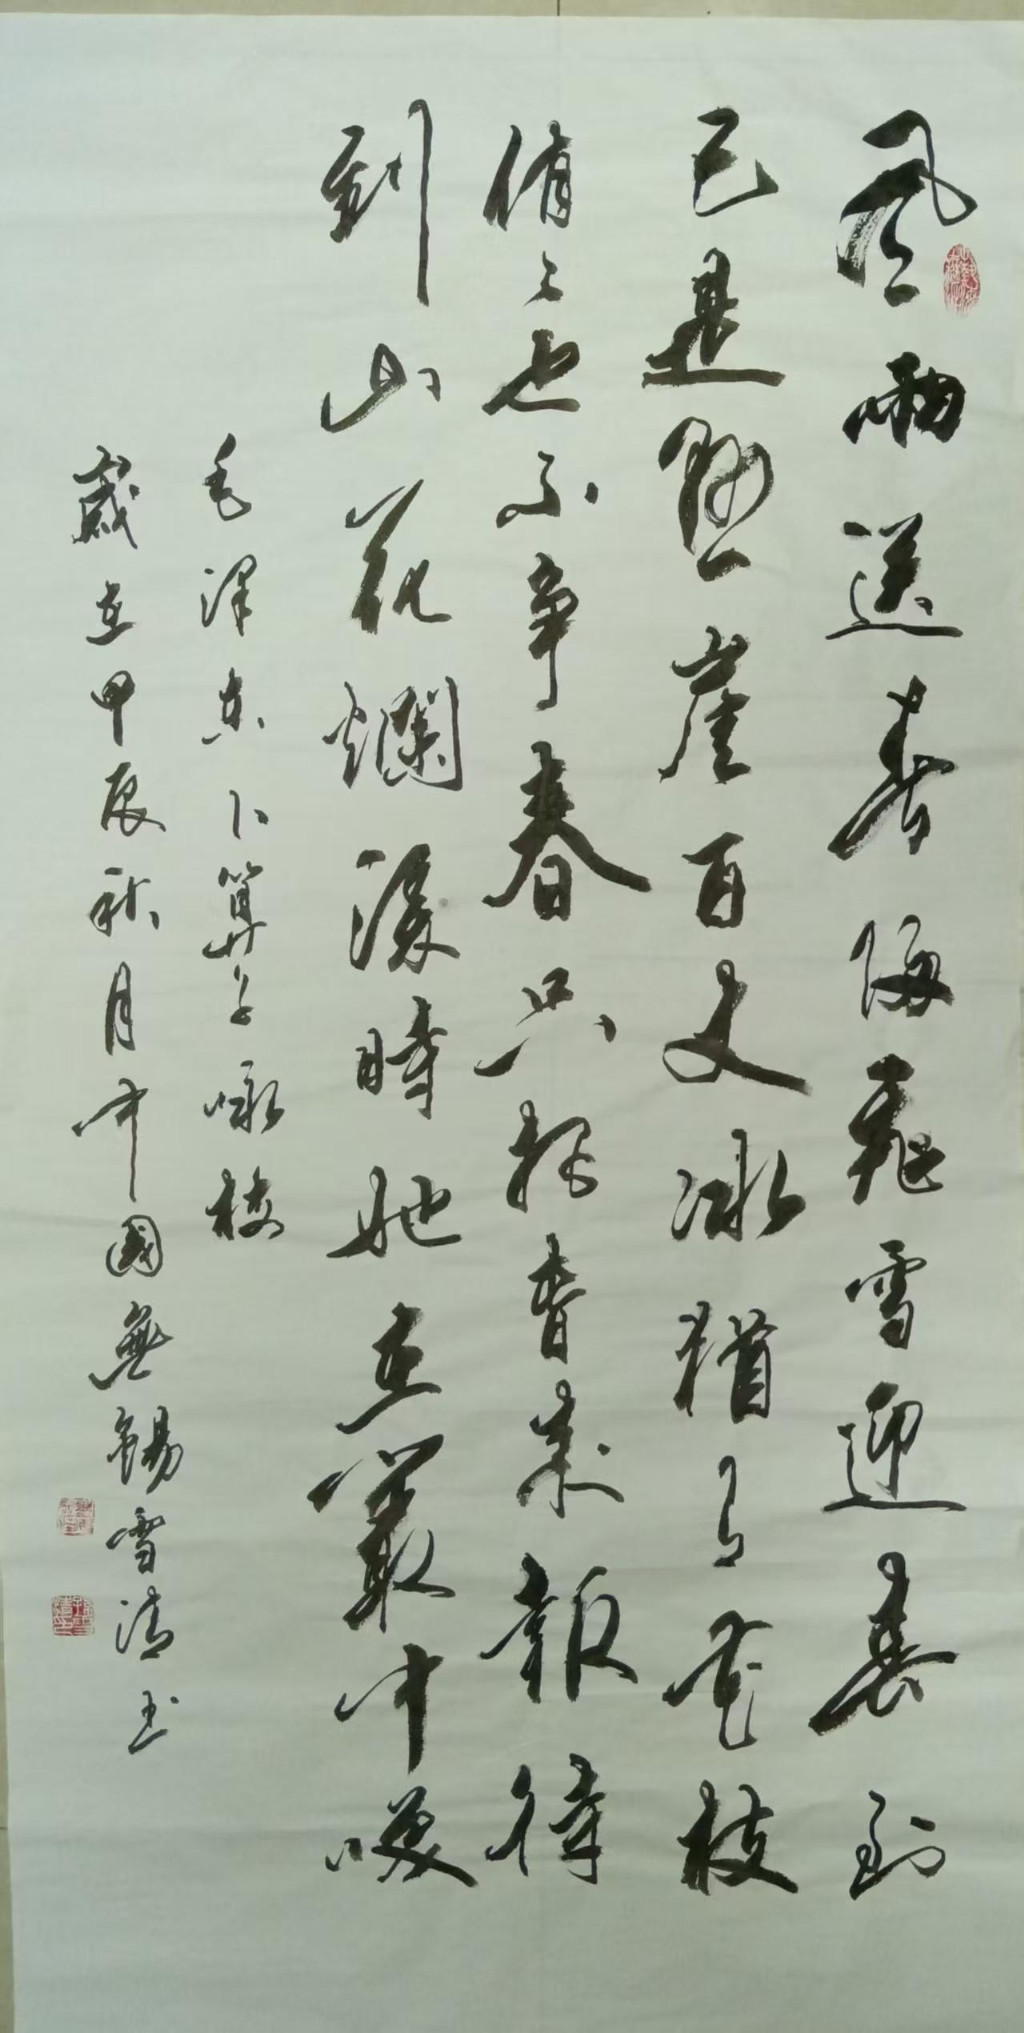 風雨送春歸飛雪迎春到
已是懸崖百丈冰猶有花枝
俏〻也不争春只把春来報待
到山花爛漫時她在叢中咲
毛澤東卜算子咏梅
歲在甲辰秋月中國無錫雪清